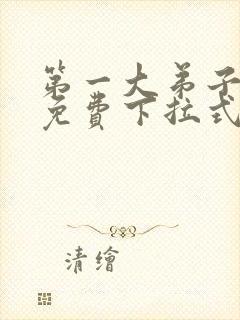 第一大弟子
免費下拉式
清繪